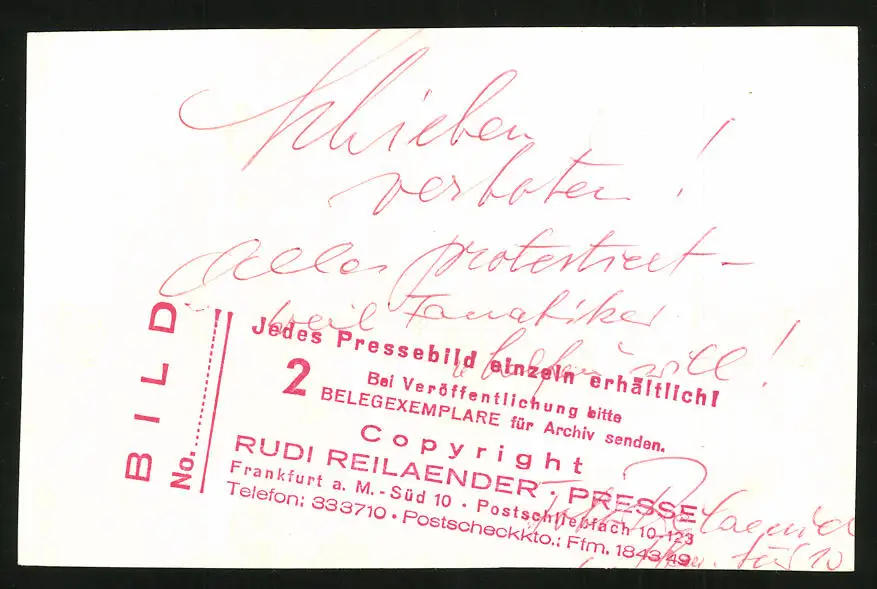 Schieben
verboten!
Alles protestiert -
weil Fanatiker
"helfen" will!
BILD
No.
Jedes Pressebild einzeln erhältlich!
2 Bei Veröffentlichung bitte
BELEGEXEMPLARE für Archiv senden.
Copyright
RUDI REILAENDER · PRESSE
Frankfurt a. M.-Süd 10 · Postschließfach 10-123
Telefon: 333710 · Postscheckkto.: Ffm. 184349
Reilaender